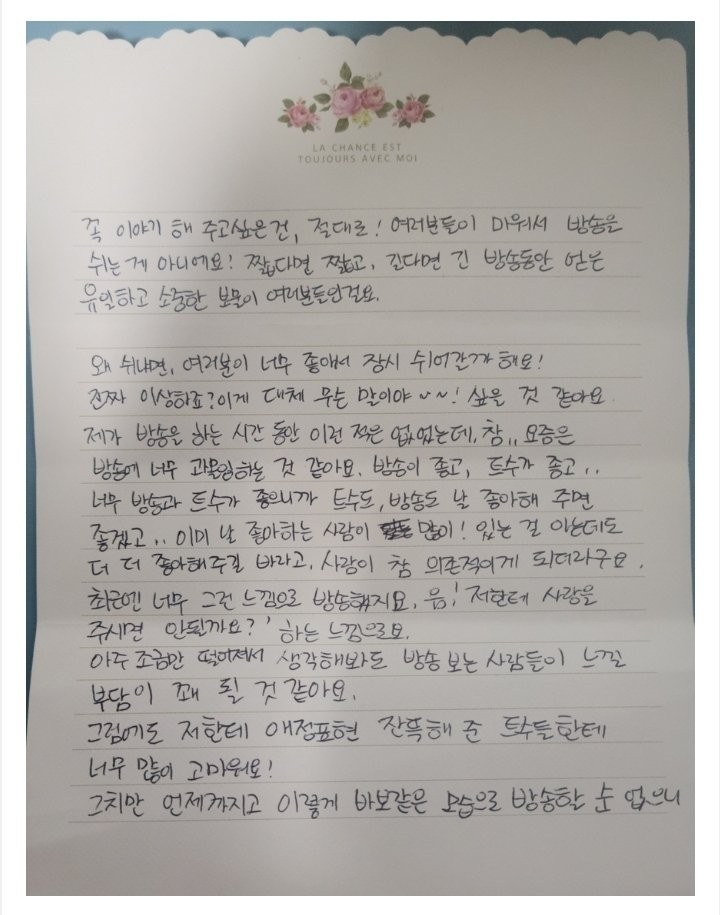 LA CHANCE EST
TOUJOURS AVEC MOI
꼭 이야기 해 주고싶은건, 절대로! 여러분들이 미워서 방송을
쉬는 게 아니에요! 짧다면 짧고, 긴다면 긴 방송동안 얻은
유일하고 소중한 보물이 여러분들인걸요.
왜 쉬냐면, 여러분이 너무 좋아서 잠시 쉬어간까 해요!
진짜 이상하죠? 이게 대체 무슨 말이야 ~~! 싶을 것 같아요
제가 방송을 하는 시간 동안 이런 적은 없었는데, 참,, 요즘은
방송에 너무 과몰입하는 것 같아요. 방송이 좋고, 트수가 좋고..
너무 방송과 트수가 좋으니까 트수도, 방송도 날 좋아해 주면
좋겠고.. 이미 날 좋아하는 사람이 많이! 있는 걸 아는데도
더 더 좋아해주길 바라고, 사람이 참 의존적이게 되더라구요.
최근엔 너무 그런 느낌으로 방송했지요. 음! 저한테 사랑을
주시면 안될까요?' 하는 느낌으로요.
아주 조금만 떨어져서 생각해봐도 방송 보는 사람들이 느낄
부담이 꽤 될 것 같아요.
그럼에도 저한테 애정표현 잔뜩해 준 트수들한테
너무 많이 고마워요!
그치만 언제까지고 이렇게 바보같은 모습으로 방송할 순 없으니